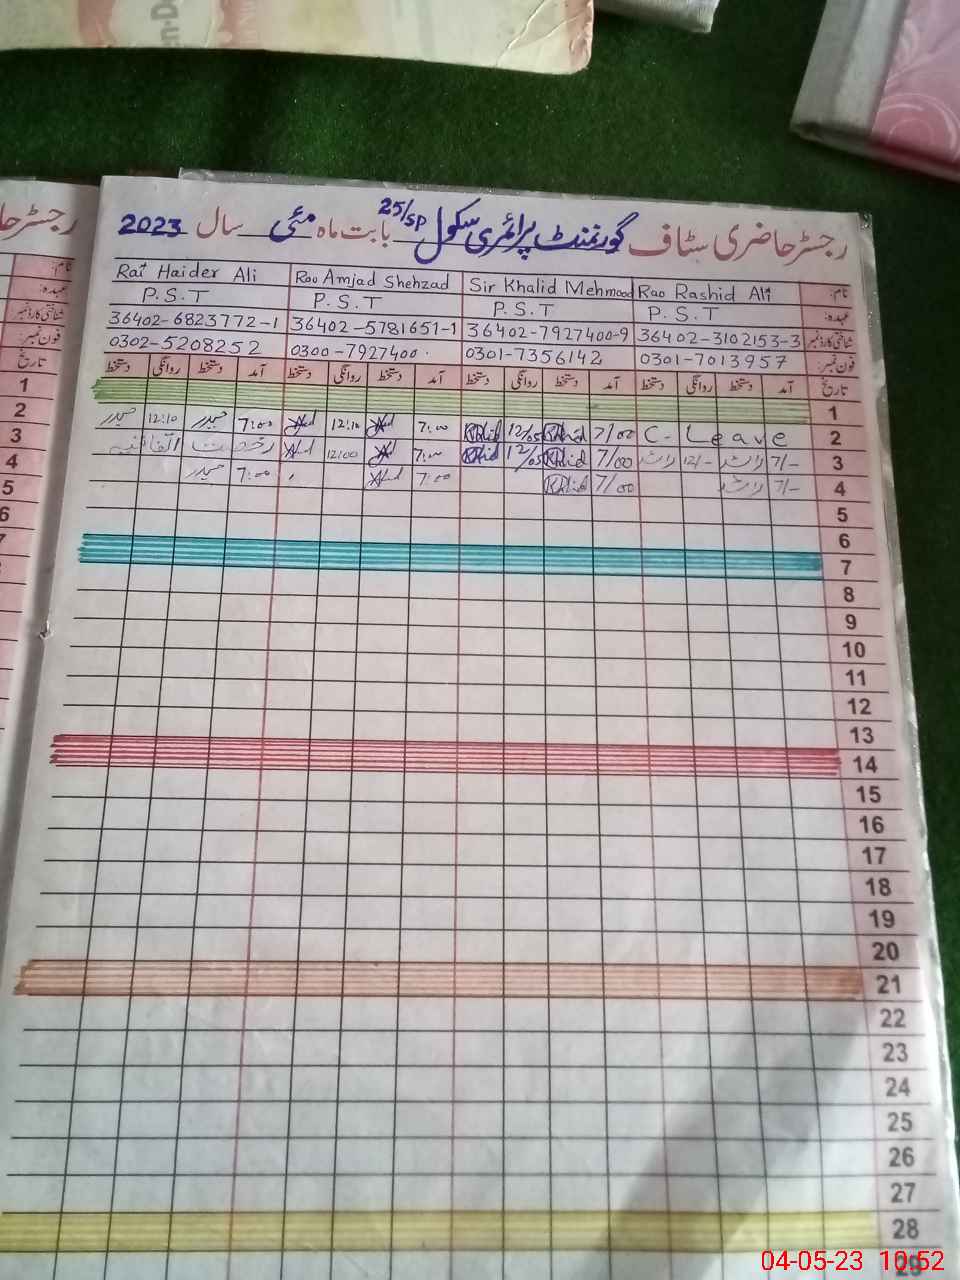 رجسٹر حاضری سٹاف گورنمنٹ پرائمری سکول 25/SP بابت ماہ مئی سال 2023
نام: Rao Rashid Ali Sir Khalid Mehmood Rao Amjad Shehzad Rai Haider Ali
عہدہ: P.S.T P.S.T P.S.T P.S.T
شناختی کارڈ نمبر 36402-3102153-3 36402-7927400-9 36402-5781651-1 36402-6823772-1
فون نمبر: 0301-7013957 0301-7356142 0300-7927400 0302-5208252
تاریخ آمد دستخط روانگی دستخط آمد دستخط روانگی دستخط آمد دستخط روانگی دستخط آمد دستخط روانگی دستخط
1
2 C-Leave 7/00 Khalid 12/05 Khalid 7:00 12:10 7:00 حیدر 12:10 حیدر
3 7/- راشد 12/- راشد 7/00 Khalid 12/05 Khalid 7:00 12:00 رخصت اتفاقیہ
4 7/- راشد 7/00 Khalid 7:00 7:00 حیدر
5
6
7
8
9
10
11
12
13
14
15
16
17
18
19
20
21
22
23
24
25
26
27
28
29
رجسٹر حا
نام:
عہدہ:
شناختی کارڈ نمبر
فون نمبر:
تاریخ
1
2
3
4
5
6
7
en-D
04-05-23 10:52